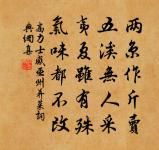 兩京作斤賣
五溪無人采
夷夏雖有殊
氣味都不改
高力士感巫州并菜詞
與細集